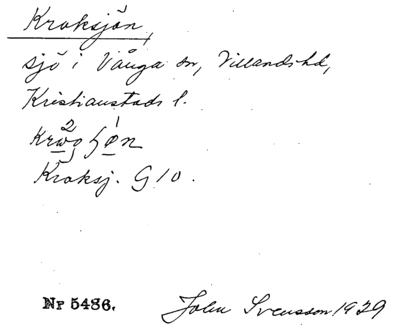 Kroksjön,
sjö i Vånga sn, Villands hd,
Kristianstads l.
Kroksj. G 10.
Nr 5436. John Svensson 1929